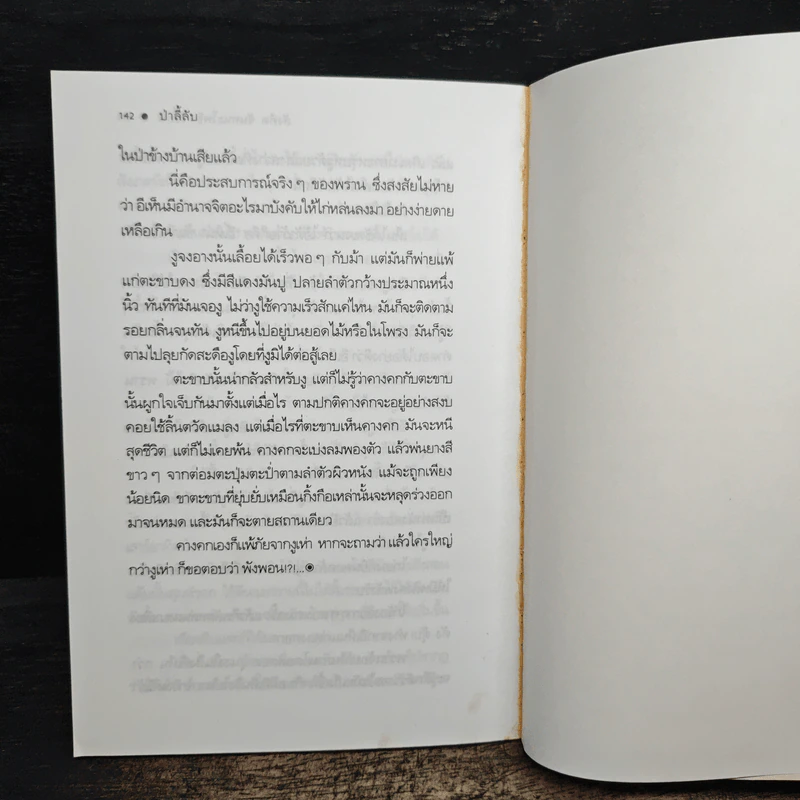 142 ● ป่าลี้ลับ
ในป่าข้างบ้านเสียแล้ว
นี่คือประสบการณ์จริง ๆ ของพราน ซึ่งสงสัยไม่หาย
ว่า อีเห็นมีอำนาจจิตอะไรมาบังคับให้ไก่หล่นลงมา อย่างง่ายดาย
เหลือเกิน
งูจงอางนั้นเลื้อยได้เร็วพอ ๆ กับม้า แต่มันก็พ่ายแพ้
แก่ตะขาบดง ซึ่งมีสีแดงมันปู ปลายลำตัวกว้างประมาณหนึ่ง
นิ้ว ทันทีที่มันเจองู ไม่ว่างูใช้ความเร็วสักแค่ไหน มันก็จะติดตาม
รอยกลิ่นจนทัน งูหนีขึ้นไปอยู่บนยอดไม้หรือในโพรง มันก็จะ
ตามไปลุยกัดสะดืองูโดยที่งูมิได้ต่อสู้เลย
ตะขาบนั้นน่ากลัวสำหรับงู แต่ก็ไม่รู้ว่าคางคกกับตะขาบ
นั้นผูกใจเจ็บกันมาตั้งแต่เมื่อไร ตามปกติคางคกจะอยู่อย่างสงบ
คอยใช้ลิ้นตวัดแมลง แต่เมื่อไรที่ตะขาบเห็นคางคก มันจะหนี
สุดชีวิต แต่ก็ไม่เคยพ้น คางคกจะเบ่งลมพองตัว แล้วพ่นยางสี
ขาว ๆ จากต่อมตะปุ่มตะป่ำตามลำตัวผิวหนัง แม้จะถูกเพียง
น้อยนิด ขาตะขาบที่ยุ่บยั่บเหมือนกิ้งกือเหล่านั้นจะหลุดร่วงออก
มาจนหมด และมันก็จะตายสถานเดียว
คางคกเองก็แพ้ภัยจากงูเห่า หากจะถามว่า แล้วใครใหญ่
กว่างูเห่า ก็ขอตอบว่า พังพอน!?!...◉